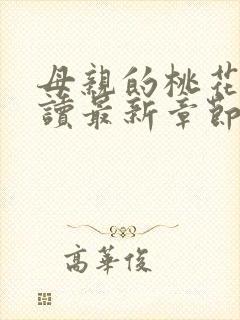 母親的桃花
讀最新章節
高華俊